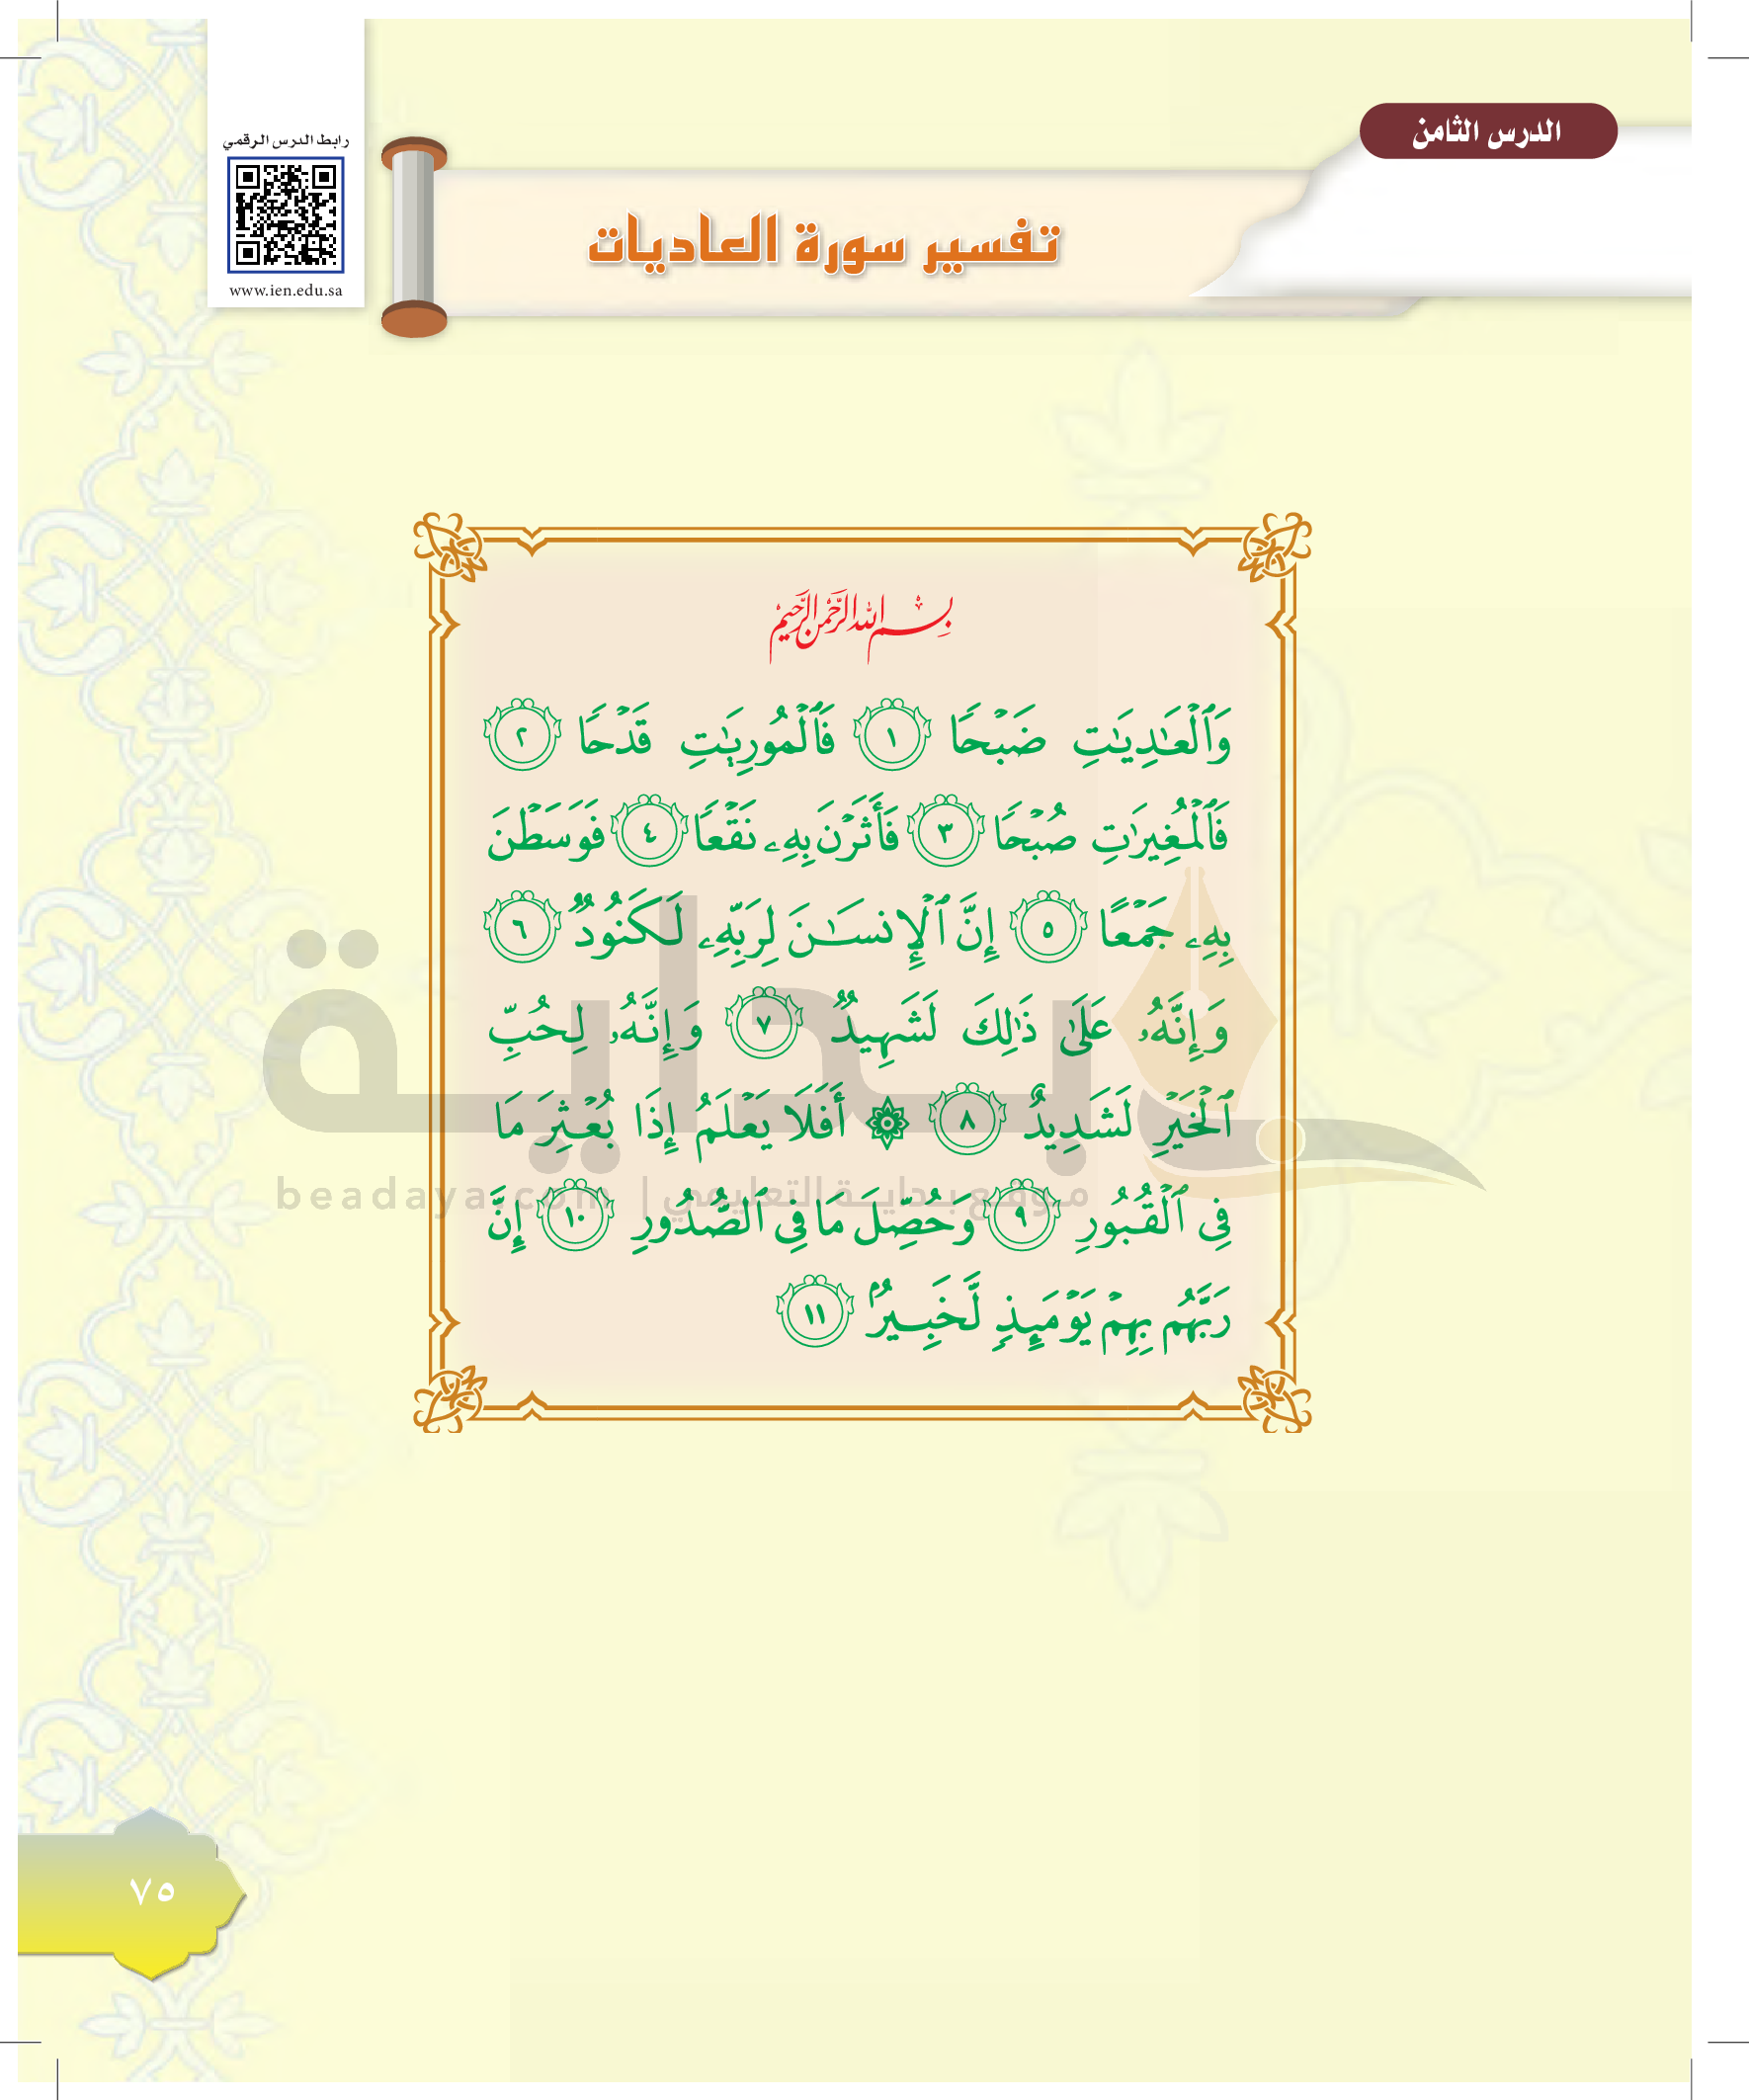 الدرس الثامن
رابط الدرس الرقمي
www.ien.edu.sa
تفسير سورة العاديات
بِسْمِ اللَّهِ الرَّحْمَنِ الرَّحِيمِ
وَٱلْعَـٰدِيَـٰتِ ضَبْحًا ١ فَٱلْمُورِيَـٰتِ قَدْحًا ٢
فَٱلْمُغِيرَٰتِ صُبْحًا ٣ فَأَثَرْنَ بِهِۦ نَقْعًا ٤ فَوَسَطْنَ
بِهِۦ جَمْعًا ٥ إِنَّ ٱلْإِنسَـٰنَ لِرَبِّهِۦ لَكَنُودٌ ٦
وَإِنَّهُۥ عَلَىٰ ذَٰلِكَ لَشَهِيدٌ ٧ وَإِنَّهُۥ لِحُبِّ
ٱلْخَيْرِ لَشَدِيدٌ ٨ ۞ أَفَلَا يَعْلَمُ إِذَا بُعْثِرَ مَا
فِى ٱلْقُبُورِ ٩ وَحُصِّلَ مَا فِى ٱلصُّدُورِ ١٠ إِنَّ
رَبَّهُم بِهِمْ يَوْمَئِذٍ لَّخَبِيرٌۢ ١١
بداية
موقع بداية التعليمي | beadaya.com
٧٥